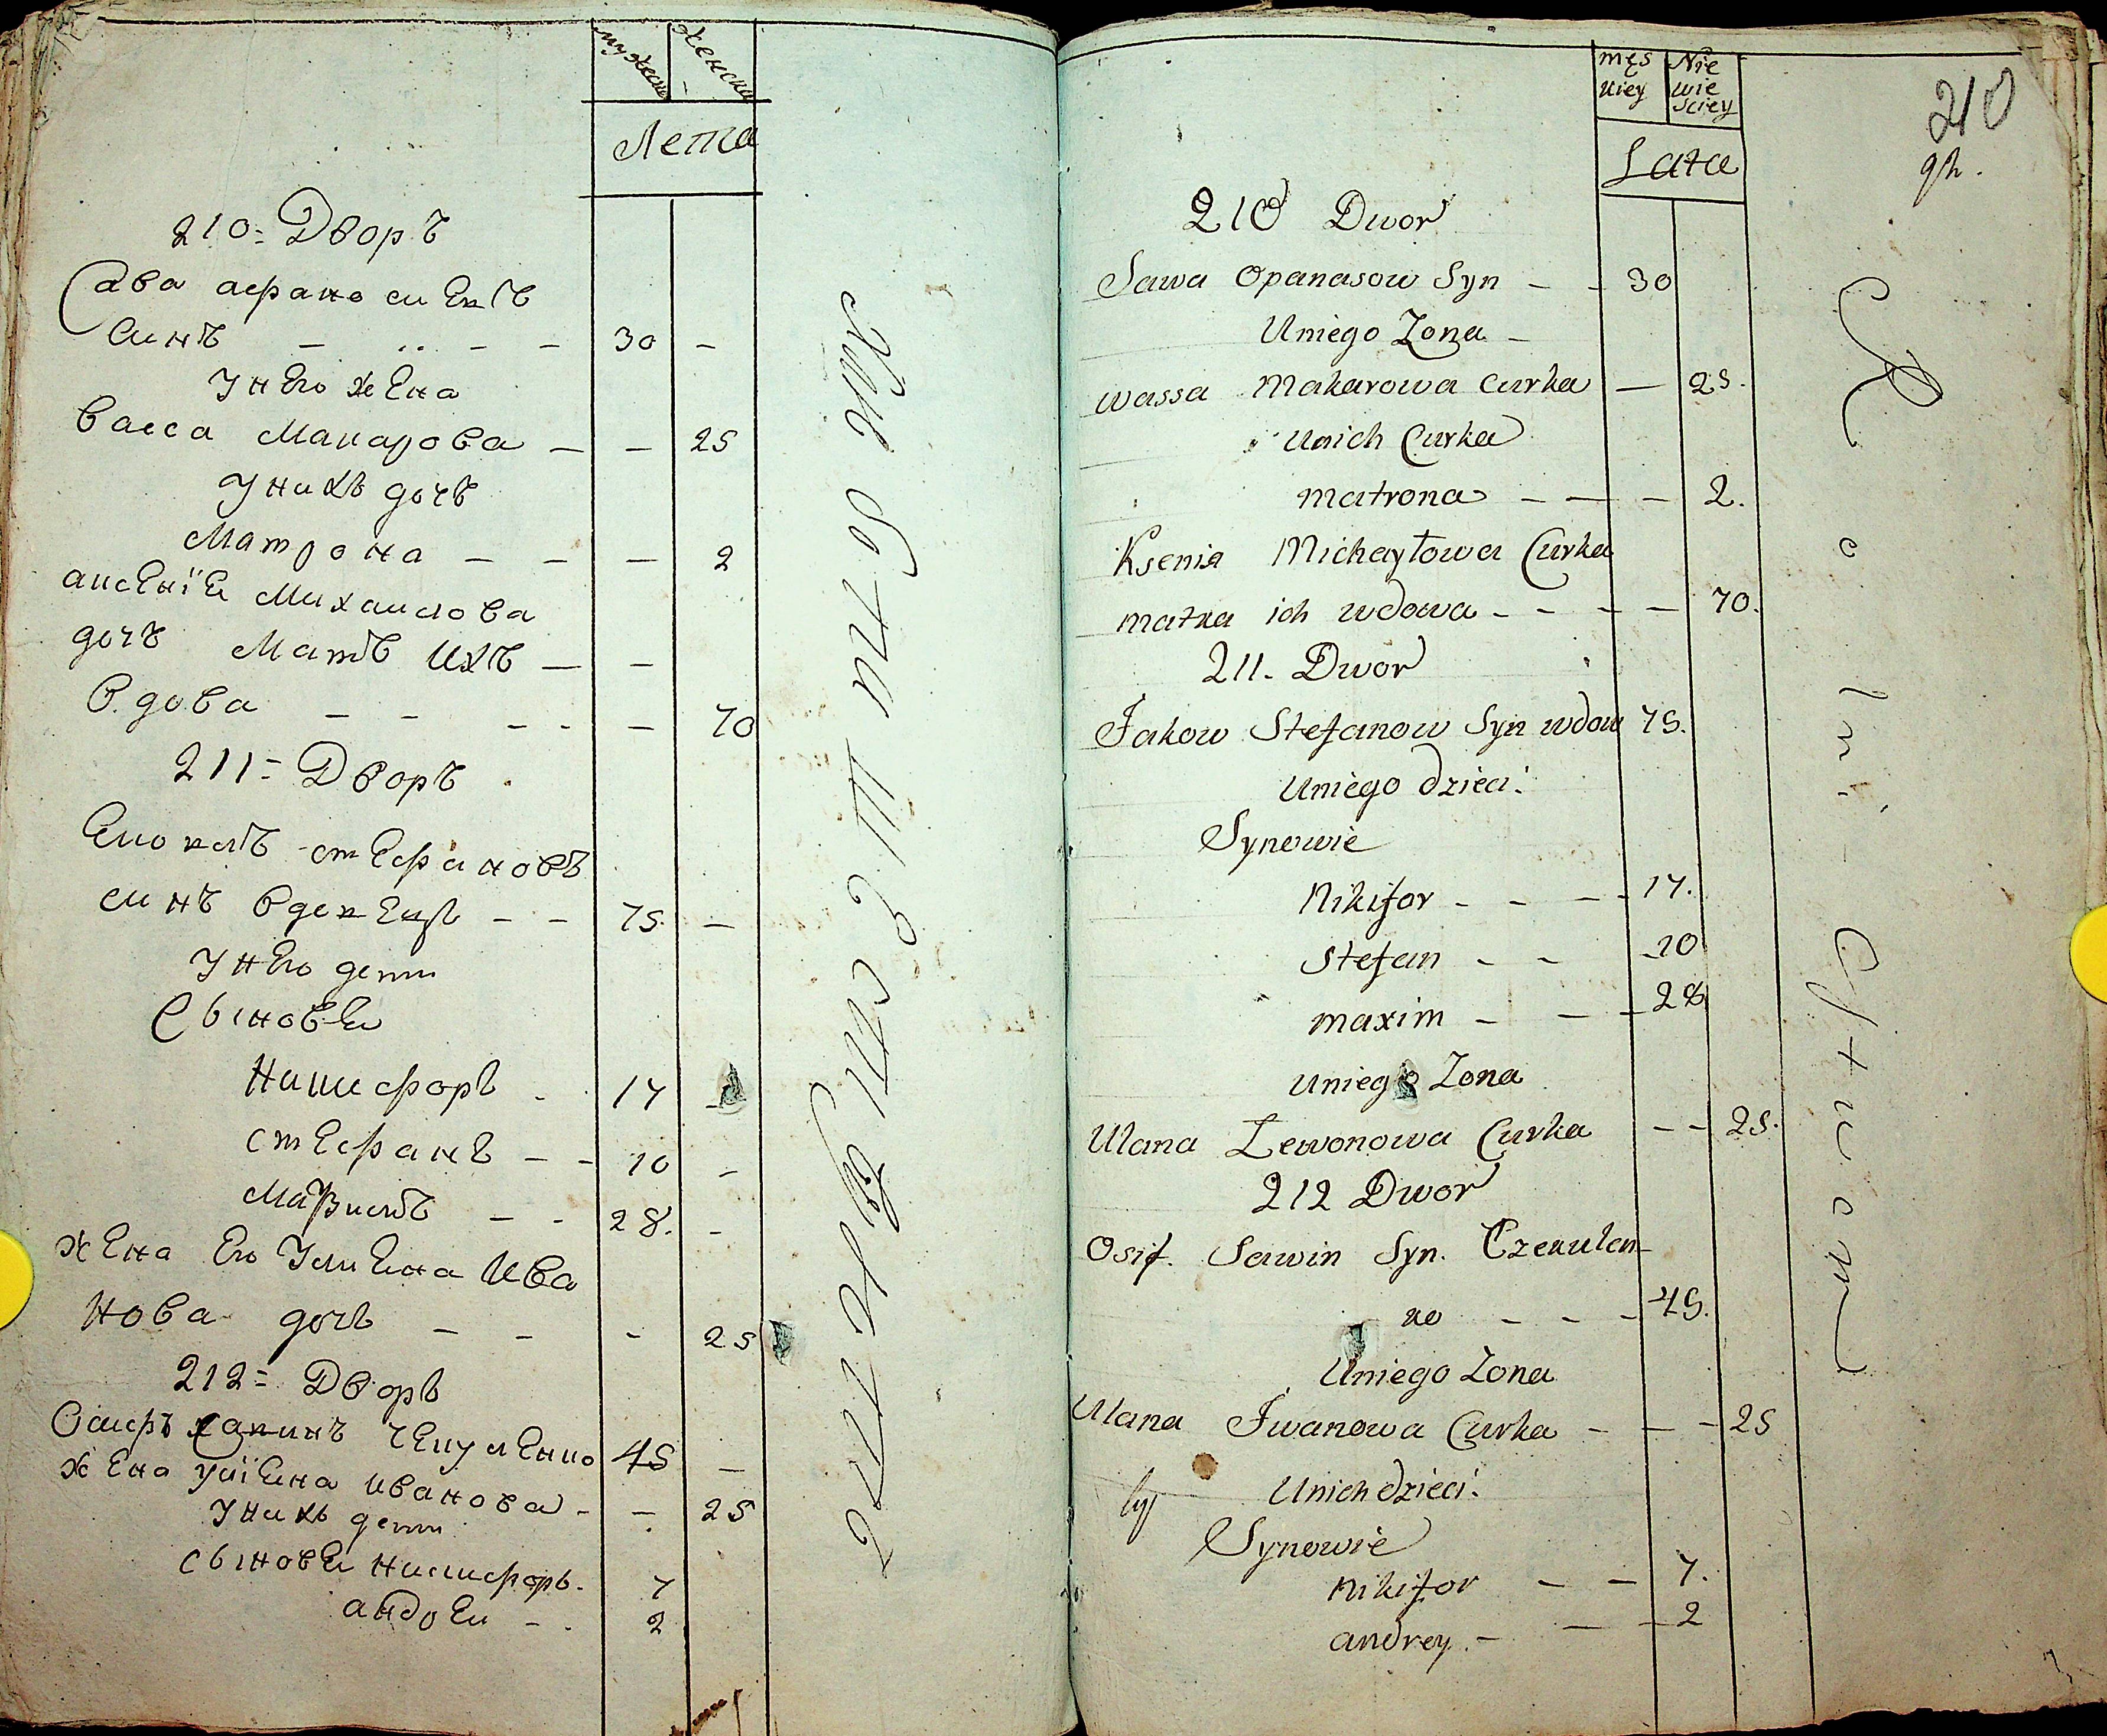 мужеск женски
Лета
210 = Дворъ
Сава афанасиевъ
синъ - - - - 30 -
У него жена
Васса Макарова - - 25
У нихъ дочь
Матрона - - - 2
аксенїе Михаилова
дочь Мать ихъ - -
Вдова - - - - - 70
211 = Дворъ
стефановъ
синъ вдовецъ - - 75. -
У него дети
Сыновеи
Никифоръ - 17 -
стефанъ - - 10 -
Максимъ - - 28. -
жена его Улиена Ива
нова дочь - - - 25
212 = Дворъ
Осифъ Савинъ Чекуленко 45 -
жена улїена иванова - - 25
У нихъ дети
сыновеи никифоръ. 7
андреи - - 2
męs kiey Nie wie sciey
Lata
210
210 Dwor
Sawa Opanasow Syn - - 30
Uniego Zona -
Wassa Makarowa Curka - 25.
Unich Curka
Matrona - - - 2.
Ksenia Michayłowa Curka
matka ich wdowa - - - - 70.
211. Dwor
Jakow Stefanow Syn wdow 75.
Uniego dzieci:
Synowie
Nikifor - - - 17.
Stefan - - 10
maxim - - - 28
Uniego Zona
Ulana Lewonowa Curka - - 25.
212 Dwor
Osif. Sawin Syn. Czekulen
ko - - - 45.
Uniego Zona
Ulana Jwanowa Curka - - - 25
Unich dzieci:
Synowie
Nikifor - - 7.
andrey. - - - 2